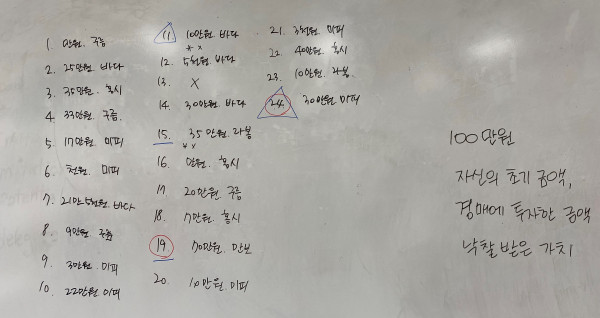 1. 만원. 구름
2. 25만원. 바다
3. 35만원. 홍시
4. 33만원. 구름.
5. 17만원. 미피
6. 천원. 미피
7. 21만 5천원. 바다
8. 9만원. 구름
9. 3만원. 미피
10. 22만원. 미피
11. 10만원. 바다
**
12. 5천원. 바다
13. X
14. 30만원. 바다
15. 35만원. 라봉
**
16. 만원. 홍시
17. 20만원. 구름
18. 7만원. 홍시
19. 70만원. 만보
20. 10만원. 미피
21. 3천원. 미피
22. 40만원. 홍시
23. 10만원. 라봉.
24. 30만원 미피
100만원
자신의 초기 금액,
경매에 투자한 금액
낙찰 받은 가치